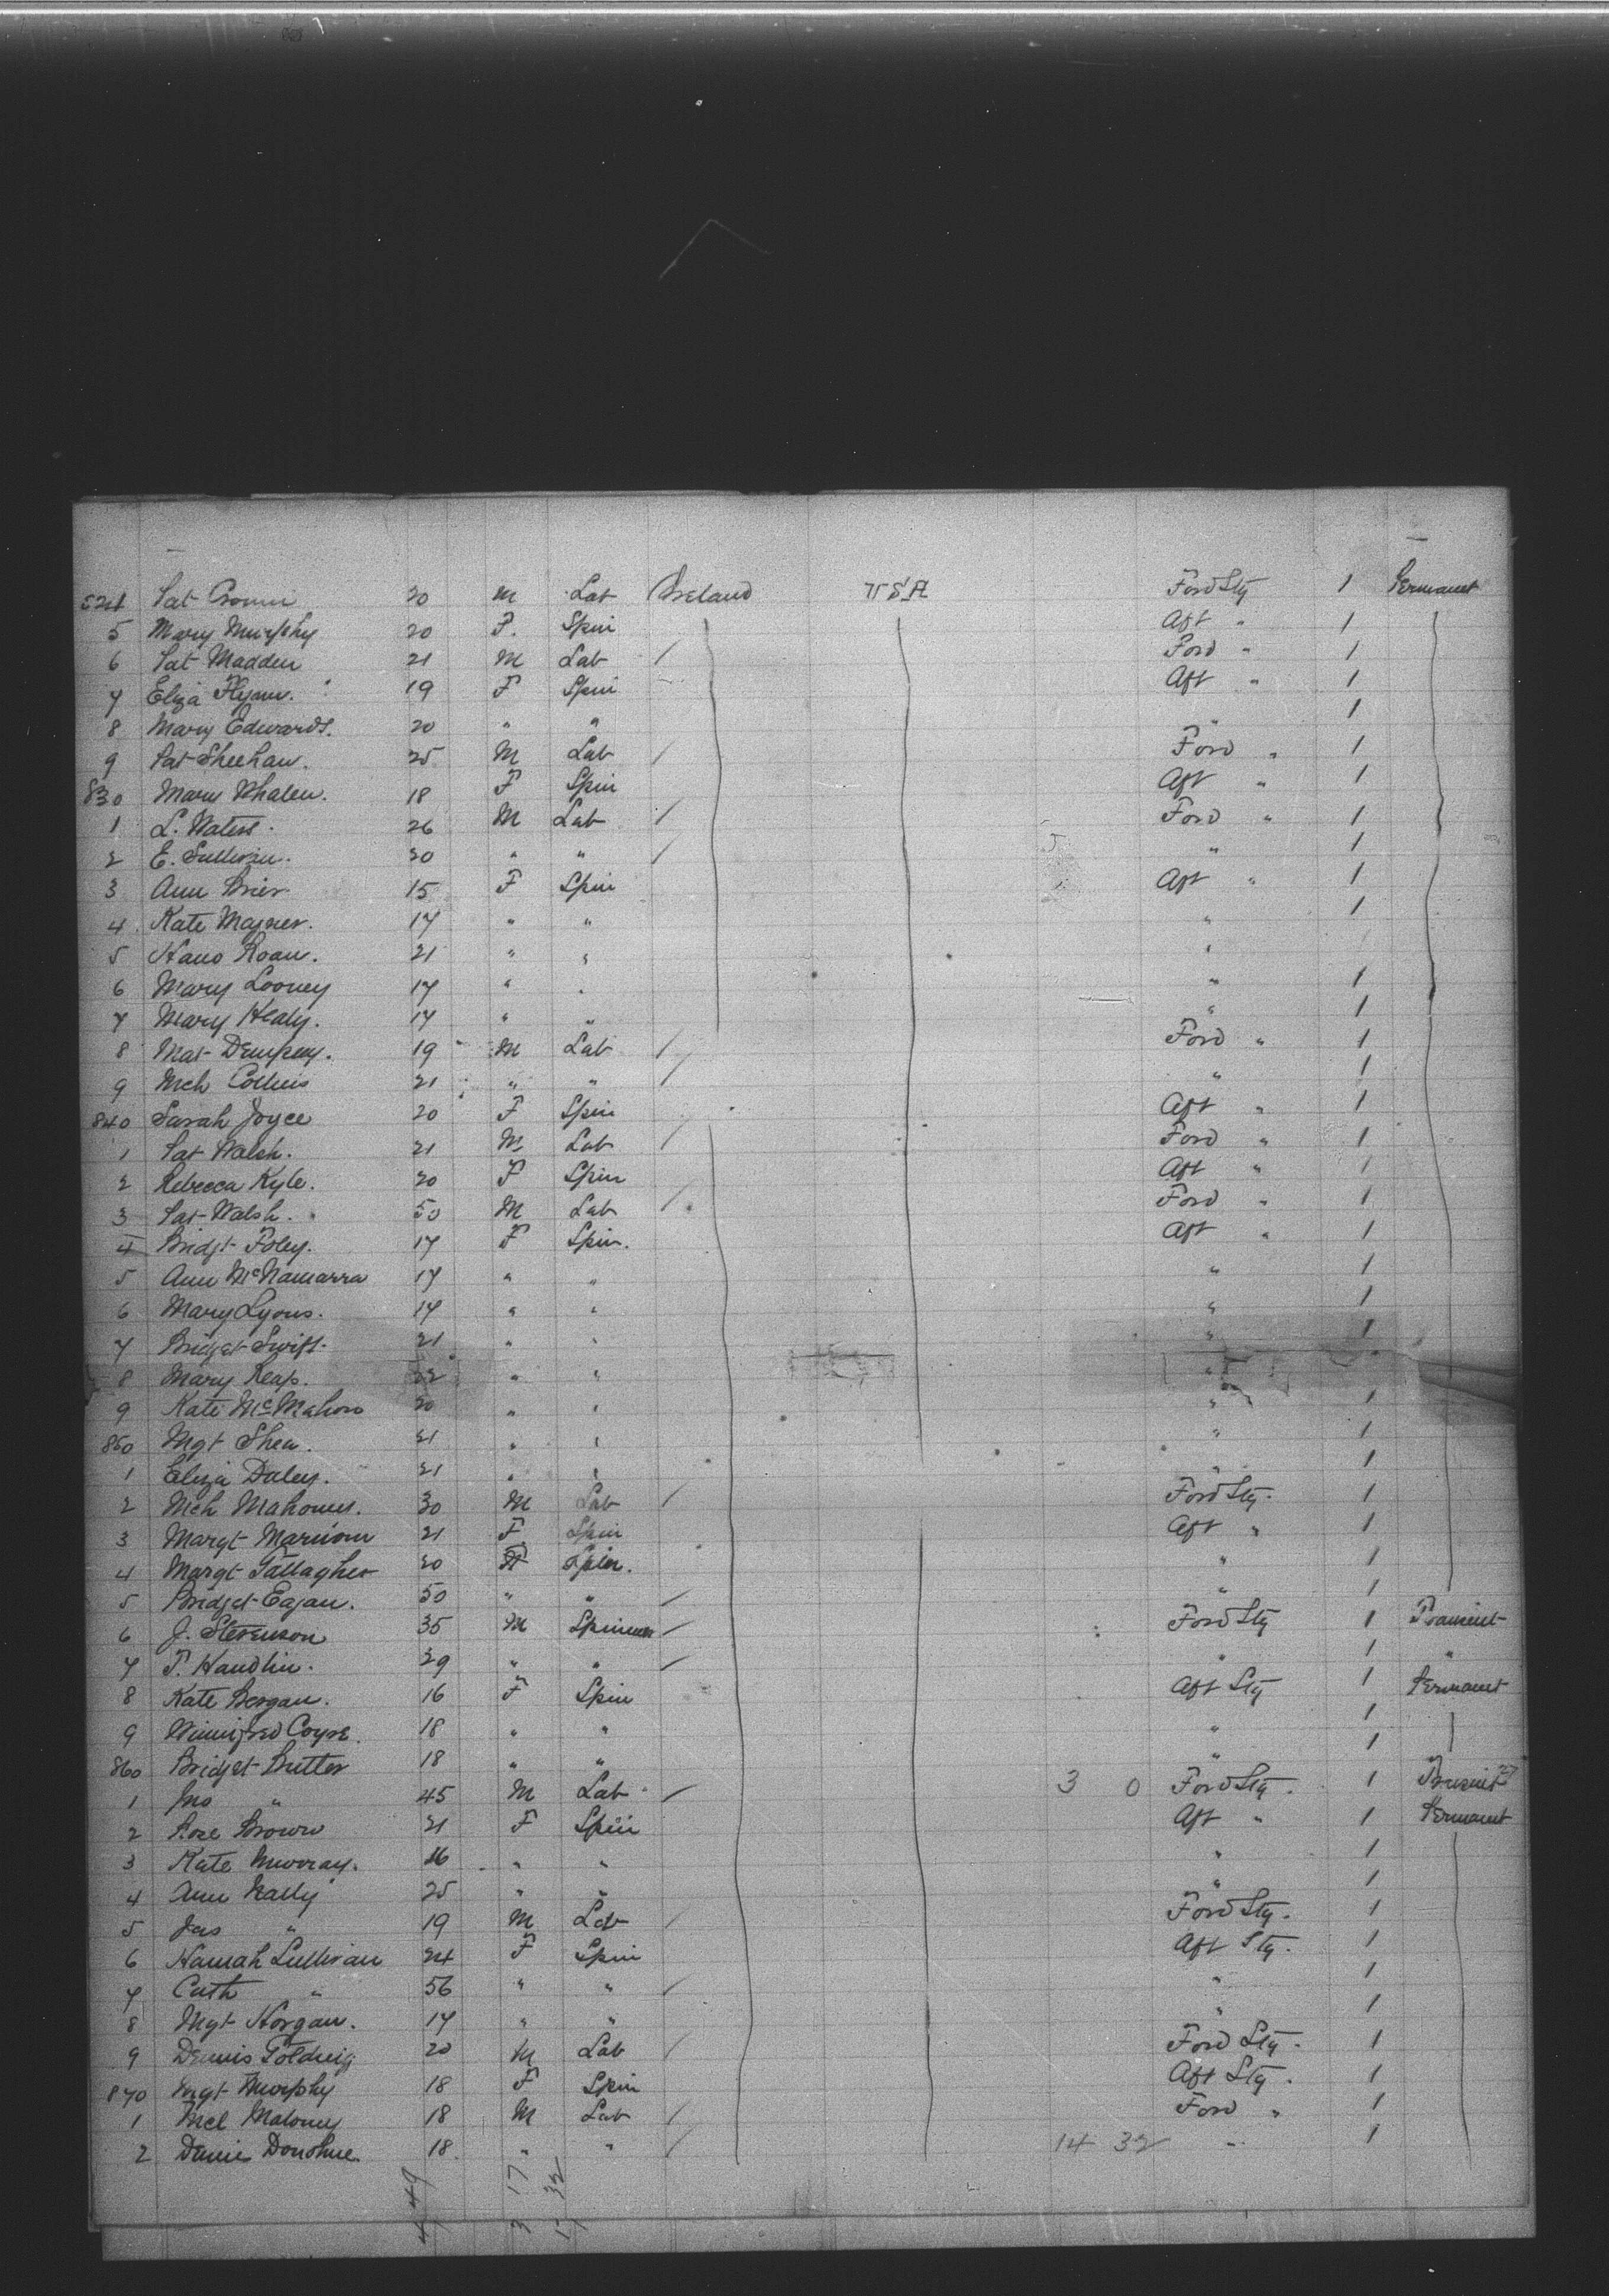 824 Pat Cronin 20 M Lab Ireland USA Ford Stg 1 Permanent
5 Mary Murphy 20 F. Spin Aft " 1
6 Pat Madden 21 M Lab / Ford " 1
7 Eliza Flynn. 19 F Spin Aft " 1
8 Mary Edwards. 20 " " " 1
9 Pat Sheehan. 25 M Lab / Ford " 1
830 Mary Whalen. 18 F Spin Aft " 1
1 L. Waters. 26 M Lab / Ford " 1
2 E. Sullivan. 20 " " / " 1
3 Ann Brier 15 F Spin Aft " 1
4 Kate Magner. 17 " " " 1
5 Hano Roan. 21 " " "
6 Mary Looney 17 " " " 1
7 Mary Healy. 17 " " " 1
8 Mat Dempsey. 19 M Lab / Ford " 1
9 Mch Collins 21 " " / " 1
840 Sarah Joyce 20 F Spin Aft " 1
1 Pat Walsh. 21 M Lab / Ford " 1
2 Rebecca Kyle. 20 F Spin Aft " 1
3 Pat Walsh. 50 M Lab / Ford " 1
4 Bridgt Foley. 17 F Spin. Aft " 1
5 Ann McNamarra 17 " " " 1
6 Mary Lyons. 17 " " " 1
7 Bridget Swift. 21 " " " 1
8 Mary Reap. 22 " " "
9 Kate McMahon 20 " " " 1
850 Mgt Shea. 21 " " " 1
1 Eliza Daley. 21 " " " 1
2 Mch Mahoney. 30 M Lab / Ford Stg. 1
3 Margt 21 F Spin Aft " 1
4 Margt Gallagher 20 F Spin. " 1
5 Bridget Eagan. 50 " " / " 1
6 J. Stevenson 35 M / Ford Stg 1 Transient
7 T. Handlin. 29 " " / " 1 "
8 Kate Bergan. 16 F Spin Aft Stg 1 Permanent
9 Winnifred Coyne. 18 " " " 1
860 Bridget Butler 18 " " " 1
1 Jno " 45 M Lab / 3 0 Ford Stg. 1
2 Rose Brown 21 F Spin Aft " 1 Permanent
3 Kate Murray. 26 " " " 1
4 Ann Nally 25 " " " 1
5 Jas " 19 M Lab / Ford Stg. 1
6 Hannah Sullivan 24 F Spin Aft Stg. 1
7 Cath " 56 " " / " 1
8 Mgt Horgan. 17 " " " 1
9 Dennis Goldrig 20 M Lab / Ford Stg. 1
870 Mgt Murphy 18 F Spin Aft Stg. 1
1 Mcl Maloney 18 M Lab / Ford " 1
2 Denis Donohue. 18. " " / 14 32 " 1
49 3 17 32